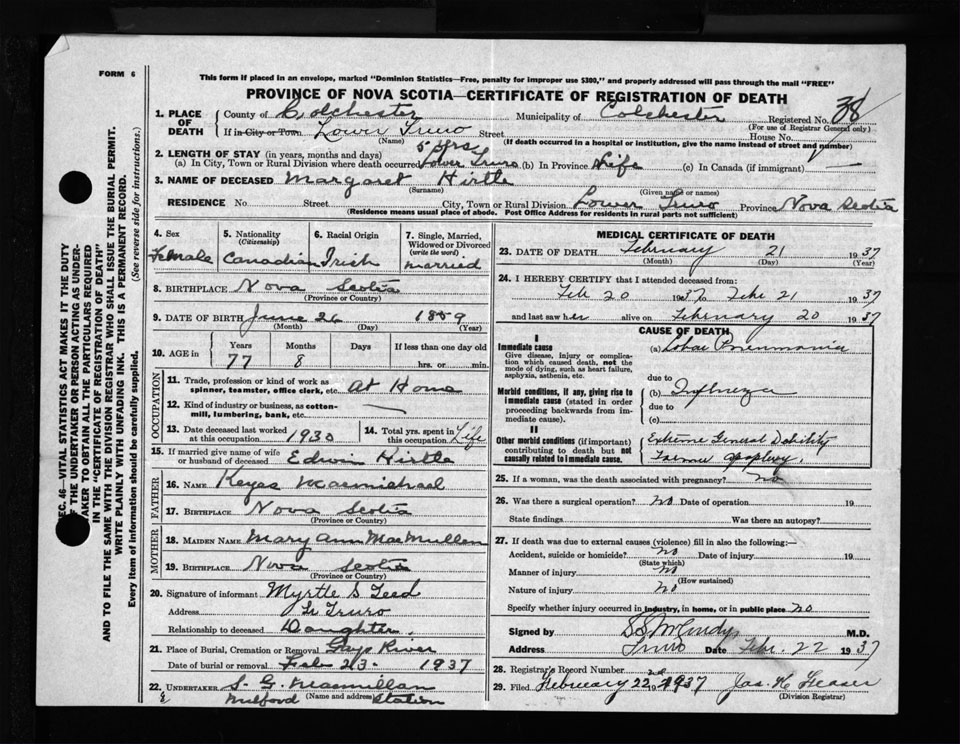 FORM 6
This form if placed in an envelope, marked "Dominion Statistics—Free, penalty for improper use $300," and properly addressed will pass through the mail "FREE"
PROVINCE OF NOVA SCOTIA—CERTIFICATE OF REGISTRATION OF DEATH
1. PLACE OF DEATH County of Colchester Municipality of Colchester Registered No. 38
(For use of Registrar General only)
If in City or Town Lower Truro Street House No.
(If death occurred in a hospital or institution, give the name instead of street and number)
2. LENGTH OF STAY (in years, months and days)
(a) In City, Town or Rural Division where death occurred 5 yrs Lower Truro (b) In Province Life (c) In Canada (if immigrant)
3. NAME OF DECEASED Margaret Hirtle
(Surname) (Given name or names)
RESIDENCE No. Street City, Town or Rural Division Lower Truro Province Nova Scotia
(Residence means usual place of abode. Post Office Address for residents in rural parts not sufficient)
4. Sex Female
5. Nationality (Citizenship) Canadian
6. Racial Origin Irish
7. Single, Married, Widowed or Divorced (write the word) married
8. BIRTHPLACE Nova Scotia
(Province or Country)
9. DATE OF BIRTH June 26 1859
(Month) (Day) (Year)
10. AGE in Years Months Days If less than one day old
77 8 hrs. or min.
OCCUPATION
11. Trade, profession or kind of work as spinner, teamster, office clerk, etc. At Home
12. Kind of industry or business, as cotton-mill, lumbering, bank, etc. —
13. Date deceased last worked at this occupation 1930
14. Total yrs. spent in this occupation Life
15. If married give name of wife or husband of deceased Edwin Hirtle
FATHER
16. NAME Keyes Macmichael
17. BIRTHPLACE Nova Scotia
(Province or Country)
MOTHER
18. MAIDEN NAME Mary Ann MacMullen
19. BIRTHPLACE Nova Scotia
(Province or Country)
20. Signature of informant Myrtle S Teed
Address L Truro
Relationship to deceased Daughter.
21. Place of Burial, Cremation or Removal Gays River
Date of burial or removal Feb 23 - 1937
22. UNDERTAKER S. G. Macmillan
(Name and address)
Milford Station
MEDICAL CERTIFICATE OF DEATH
23. DATE OF DEATH February 21 1937
(Month) (Day) (Year)
24. I HEREBY CERTIFY that I attended deceased from:
Feb 20 1937 to Feb 21 1937
and last saw her alive on February 20 1937
CAUSE OF DEATH
I
Immediate cause
Give disease, injury or complication which caused death, not the mode of dying, such as heart failure, asphyxia, asthenia, etc.
(a) Lobar Pneumonia
due to
Morbid conditions, if any, giving rise to immediate cause (stated in order proceeding backwards from immediate cause).
(b) Influenza
due to
(c)
II
Other morbid conditions (if important) contributing to death but not causally related to immediate cause.
Extreme General Debility
Former apoplexy.
25. If a woman, was the death associated with pregnancy? no
26. Was there a surgical operation? no Date of operation 19
State findings Was there an autopsy?
27. If death was due to external causes (violence) fill in also the following:—
Accident, suicide or homicide? no Date of injury 19
(State which)
Manner of injury no
(How sustained)
Nature of injury no
Specify whether injury occurred in industry, in home, or in public place no
Signed by M.D.
Address Truro Date Feb. 22 1937
28. Registrar's Record Number
29. Filed February 22nd 1937 Jas. H
(Division Registrar)
SEC. 46—VITAL STATISTICS ACT MAKES IT THE DUTY
OF THE UNDERTAKER OR PERSON ACTING AS UNDERTAKER TO OBTAIN ALL THE PARTICULARS REQUIRED
IN THE "CERTIFICATE OF REGISTRATION OF DEATH"
AND TO FILE THE SAME WITH THE DIVISION REGISTRAR WHO SHALL ISSUE THE BURIAL PERMIT.
WRITE PLAINLY WITH UNFADING INK. THIS IS A PERMANENT RECORD.
Every item of information should be carefully supplied. (See reverse side for instructions.)